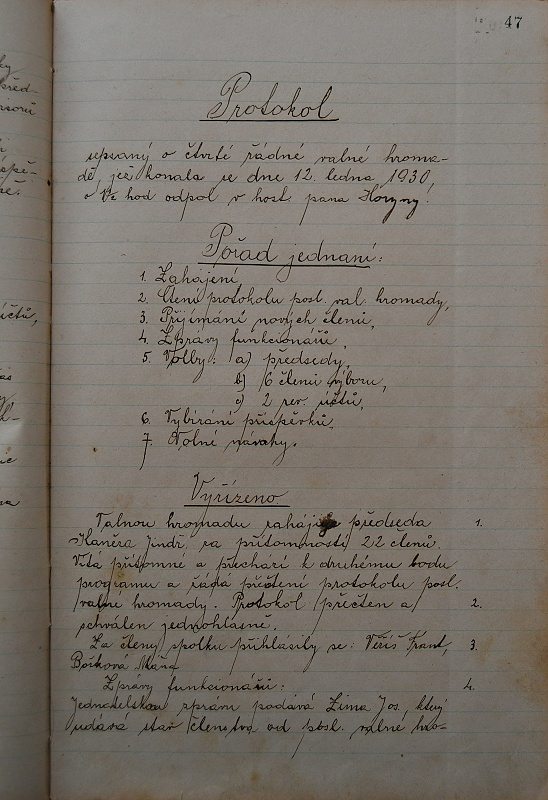 47
Protokol
sepsaný o čtvrté řádné valné hroma-
dě, jež konala se dne 12. ledna 1930,
o ½ hod odpol. v host. pana Horyny.
Pořad jednaní:
1. Zahájení,
2. Čtení protokolu posl. val. hromady,
3. Přijímání nových členů,
4. Zprávy funkcionářů,
5. Volby: a) předsedy,
b) 6 členů výboru,
c) 2 rev. účtů,
6. Vybírání příspěvků,
7. Volné návrhy.
Vyřízeno
Valnou hromadu zahájil předseda 1.
Kaněra Jindř. za přítomnosti 22 členů.
Vítá přítomné a přechází k druhému bodu
programu a žádá přečtení protokolu posl.
valné hromady. Protokol přečten a 2.
schválen jednohlasně.
Za členy spolku přihlásily se: Frant, 3.
Bořková
Zprávy funkcionářů: 4.
Jednatelskou zprávu podává Zima Jos., který
udává stav členstva od posl. valné hro-
ky
před-
účtů,